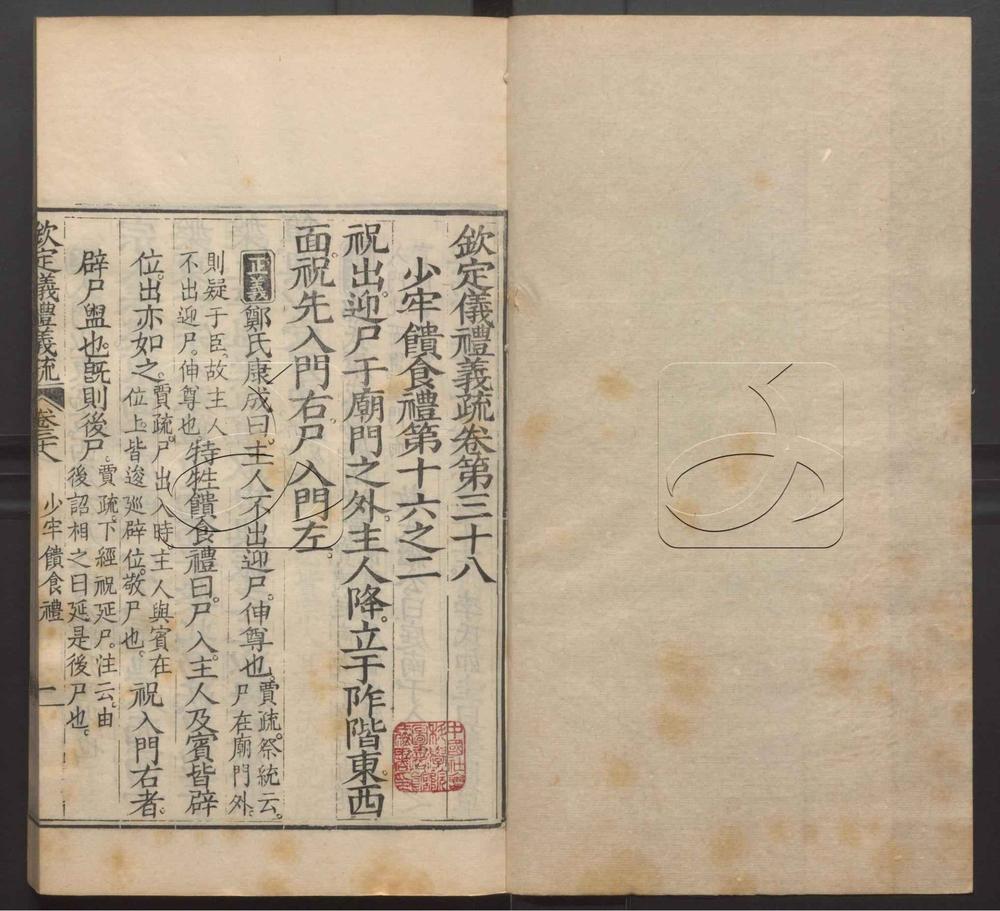 欽定儀禮義疏卷第三十八
少牢饋食禮第十六之二
祝出迎尸于廟門之外主人降立于阼階東西
面祝先入門右尸入門左
正義鄭氏康成曰主人不出迎尸伸尊也
賈疏祭統云
尸在廟門外
則疑于臣故主人
不出迎尸伸尊也
特牲饋食禮曰尸入主人及賓皆辟
位出亦如之
賈疏尸出入時主人與賓在
位上皆逡廵辟位敬尸也
祝入門右者
辟尸盥也旣則後尸
賈疏下經祝延尸注云由
後詔相之曰延是後尸也
欽定儀禮義疏
卷三十八
少牢饋食禮
中國社會